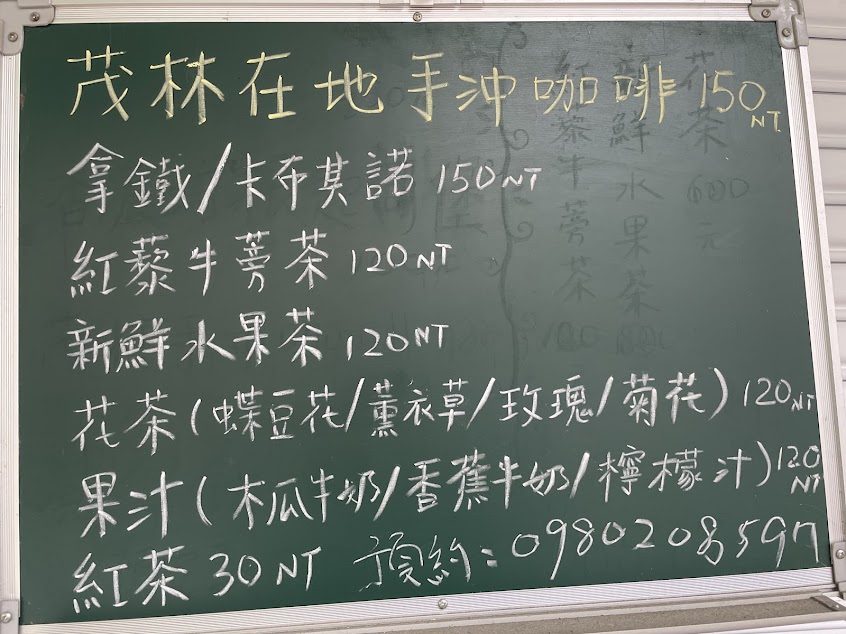 茂林在地手沖咖啡 150 NT
拿鐵/卡布其諾 150 NT
紅藜牛蒡茶 120 NT
新鮮水果茶 120 NT
花茶(蝶豆花/薰衣草/玫瑰/菊花) 120 NT
果汁(木瓜牛奶/香蕉牛奶/檸檬汁) 120 NT
紅茶 30 NT 預約: 0980208597